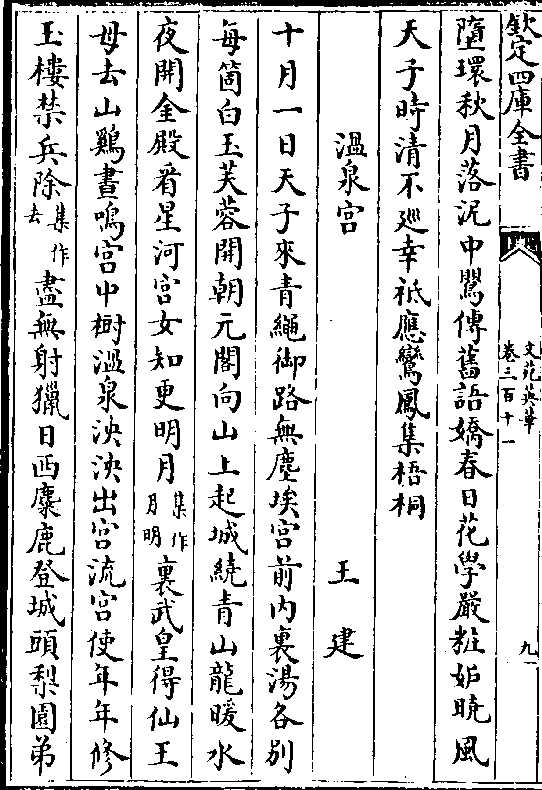 欽定四庫全書
文苑英華
卷三百十一
九
墮環秋月落泥中鸎傳舊語嬌春日花學嚴粧妒曉風
天子時清不廵幸祗應鸞鳳集梧桐
溫泉宫 王建
十月一日天子來青繩御路無塵埃宫前内裏湯各别
每箇白玉芙蓉開朝元閣向山上起城繞青山龍暖水
夜開金殿㸔星河宫女知更明月集作月明裏武皇得仙王
母去山鷄晝鳴宫中樹溫泉泱泱出宫流宫使年年修
玉樓禁兵除集作去盡無射獵日西麋鹿登城頭梨園弟